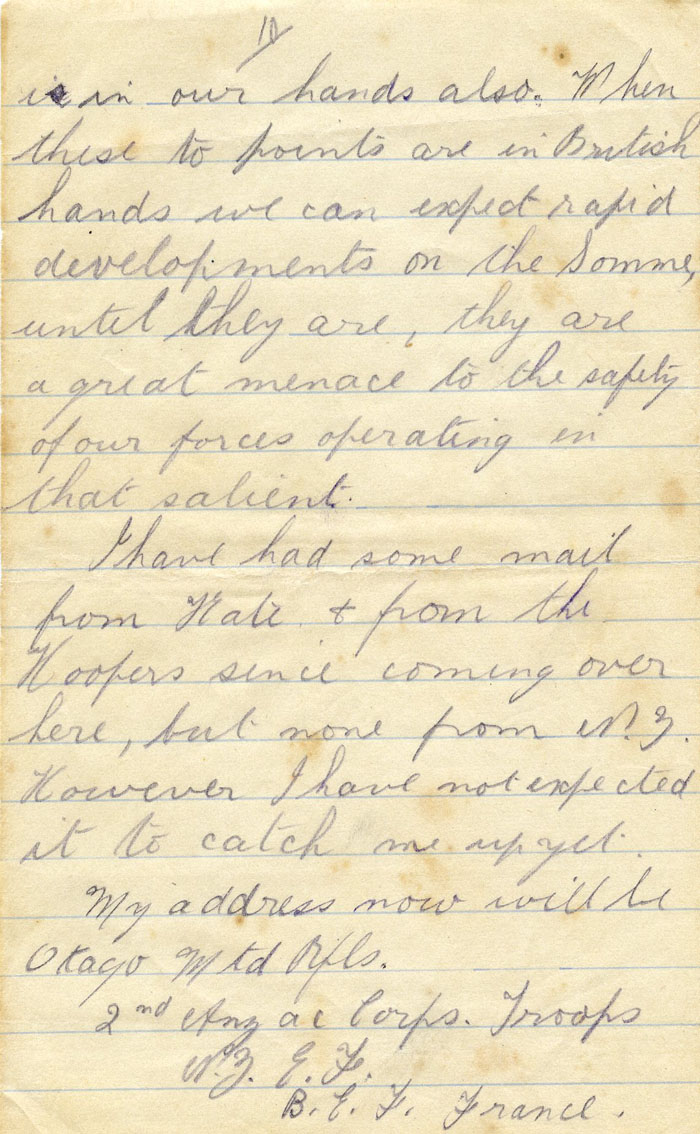 10/
is in our hands also. When
these to points are in British
hands we can expect rapid
developments on the Somme,
until they are, they are
a great menace to the safety
of our forces operating in
that salient.
I have had some mail
from Kate & from the
Hoopers since coming over
here, but none from N.Z.
However I have not expected
it to catch me up yet.
My address now will be
Otago Mtd Rfls.
2nd Anzac Corps. Troops
N.Z. E. F.
B. E. F. France.